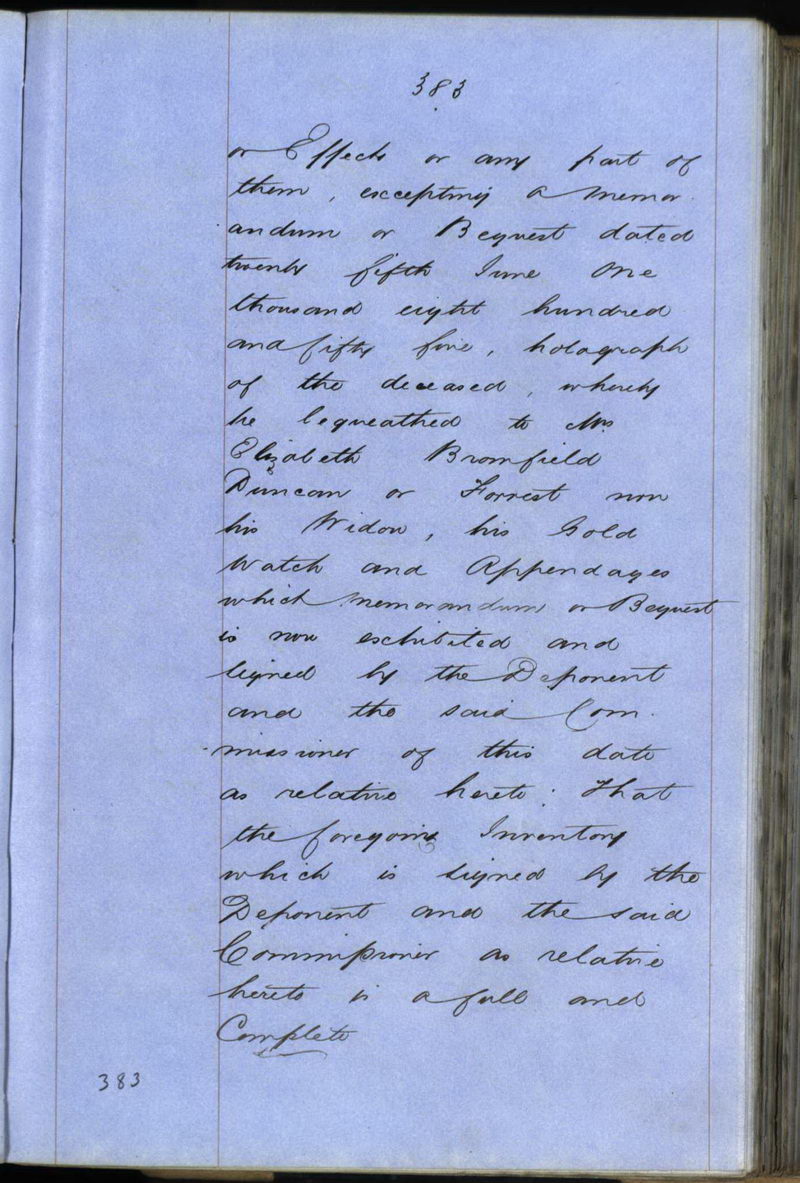 383
or Effects or any part of
them, excepting a Memor
andum or Bequest dated
twenty fifth June One
thousand eight hundred
and fifty five, holograph
of the deceased, whereby
he bequeathed to Mrs
Elizabeth Bromfield
Duncan or Forrest now
his Widow, his Gold
Watch and Appendages
which memorandum or Bequest
is now exhibited and
signed by the Deponent
and the said Com
missioner of this date
as relative hereto: That
the foregoing Inventory
which is signed by the
Deponent and the said
Commissioner as relative
hereto is a full and
Complete
383